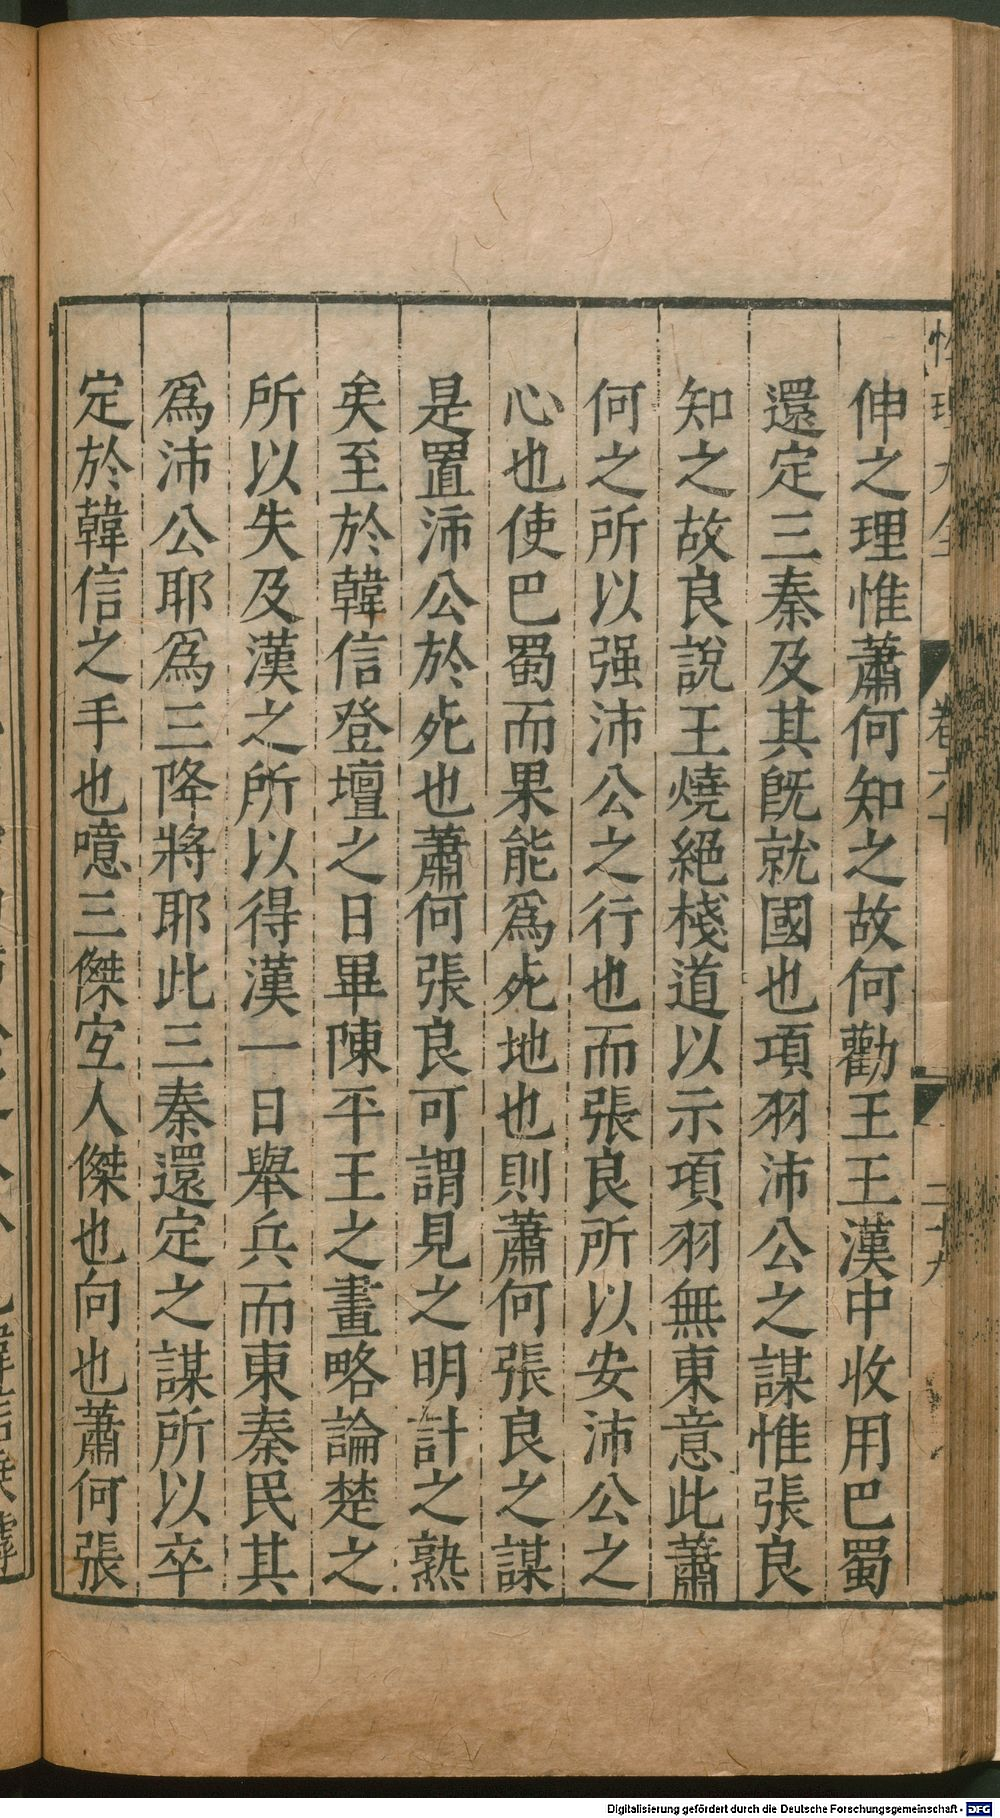 伸之理惟蕭何知之故何勸王王漢中收用巴蜀
還定三秦及其旣就國也項羽沛公之謀惟張良
知之故良說王燒絕棧道以示項羽無東意此蕭
何之所以强沛公之行也而張良所以安沛公之
心也使巴蜀而果能爲死地也則蕭何張良之謀
是置沛公於死也蕭何張良可謂見之明計之熟
矣至於韓信登壇之日畢陳平王之畫略論楚之
所以失及漢之所以得漢一日舉兵而東秦民其
爲沛公耶爲三降將耶此三秦還定之謀所以卒
定於韓信之手也噫三傑寔人傑也向也蕭何張
性理大全
卷六十
二十九
Digitalisierung gefördert durch die Deutsche Forschungsgemeinschaft - DFG